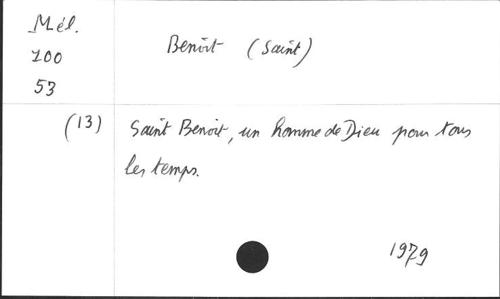 Mél.
100
53
Benoît (Saint)
(13) Saint Benoit, un homme de Dieu pour tous
les temps.
1979